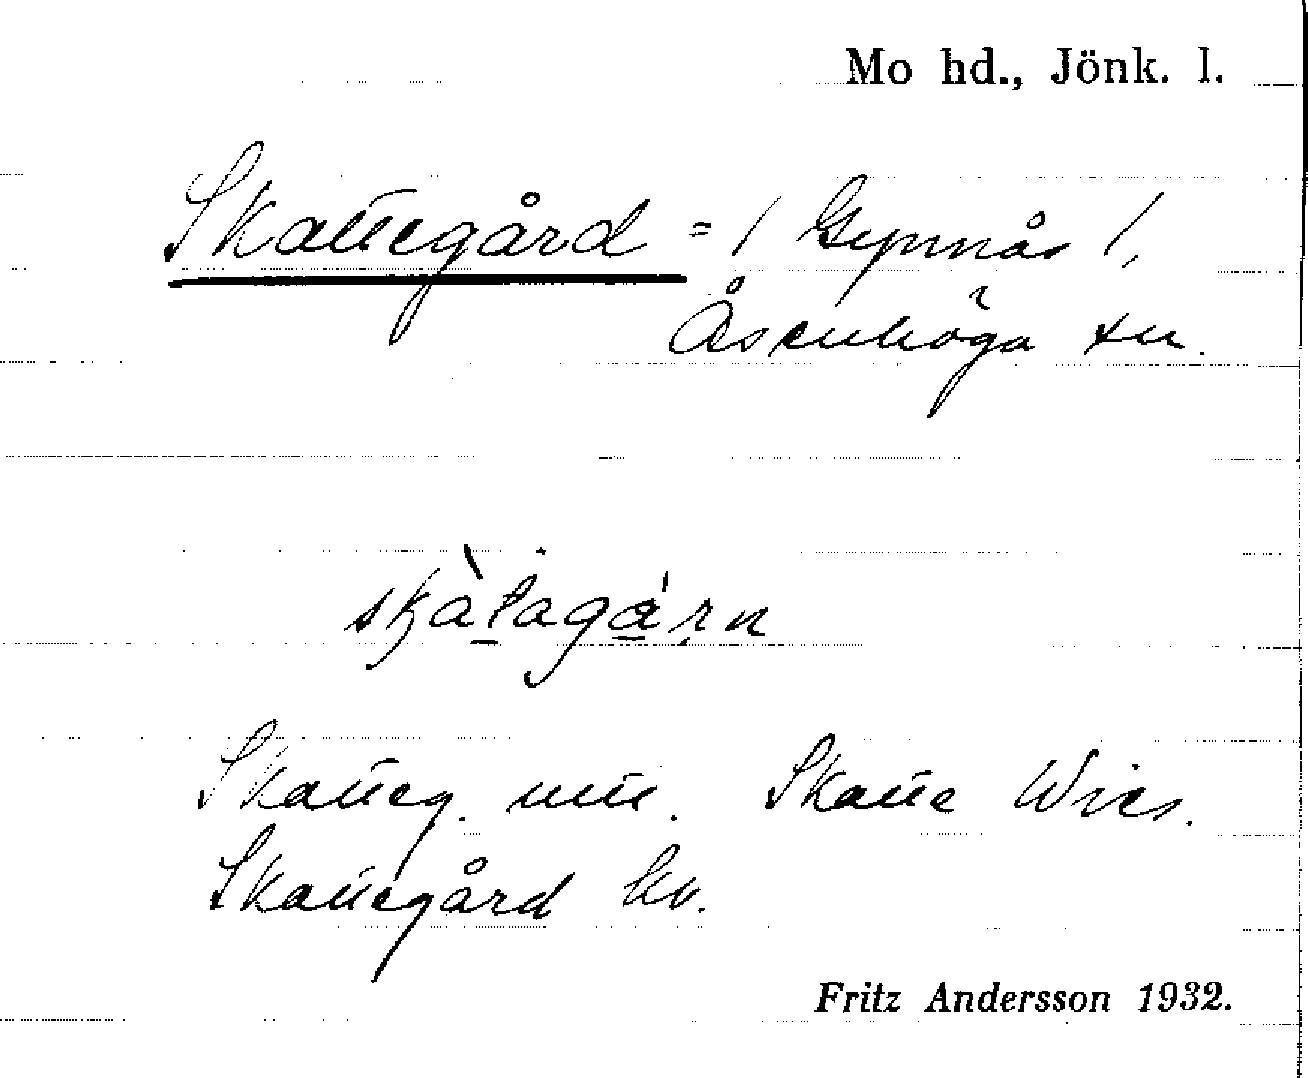 Mo hd., Jönk. l.
Skattegård = / Gynnås /,
Åsenhöga sn.
skàtagá̱rn
Skatteg. utt. Skatte Wies.
Skattegård kv.
Fritz Andersson 1932.